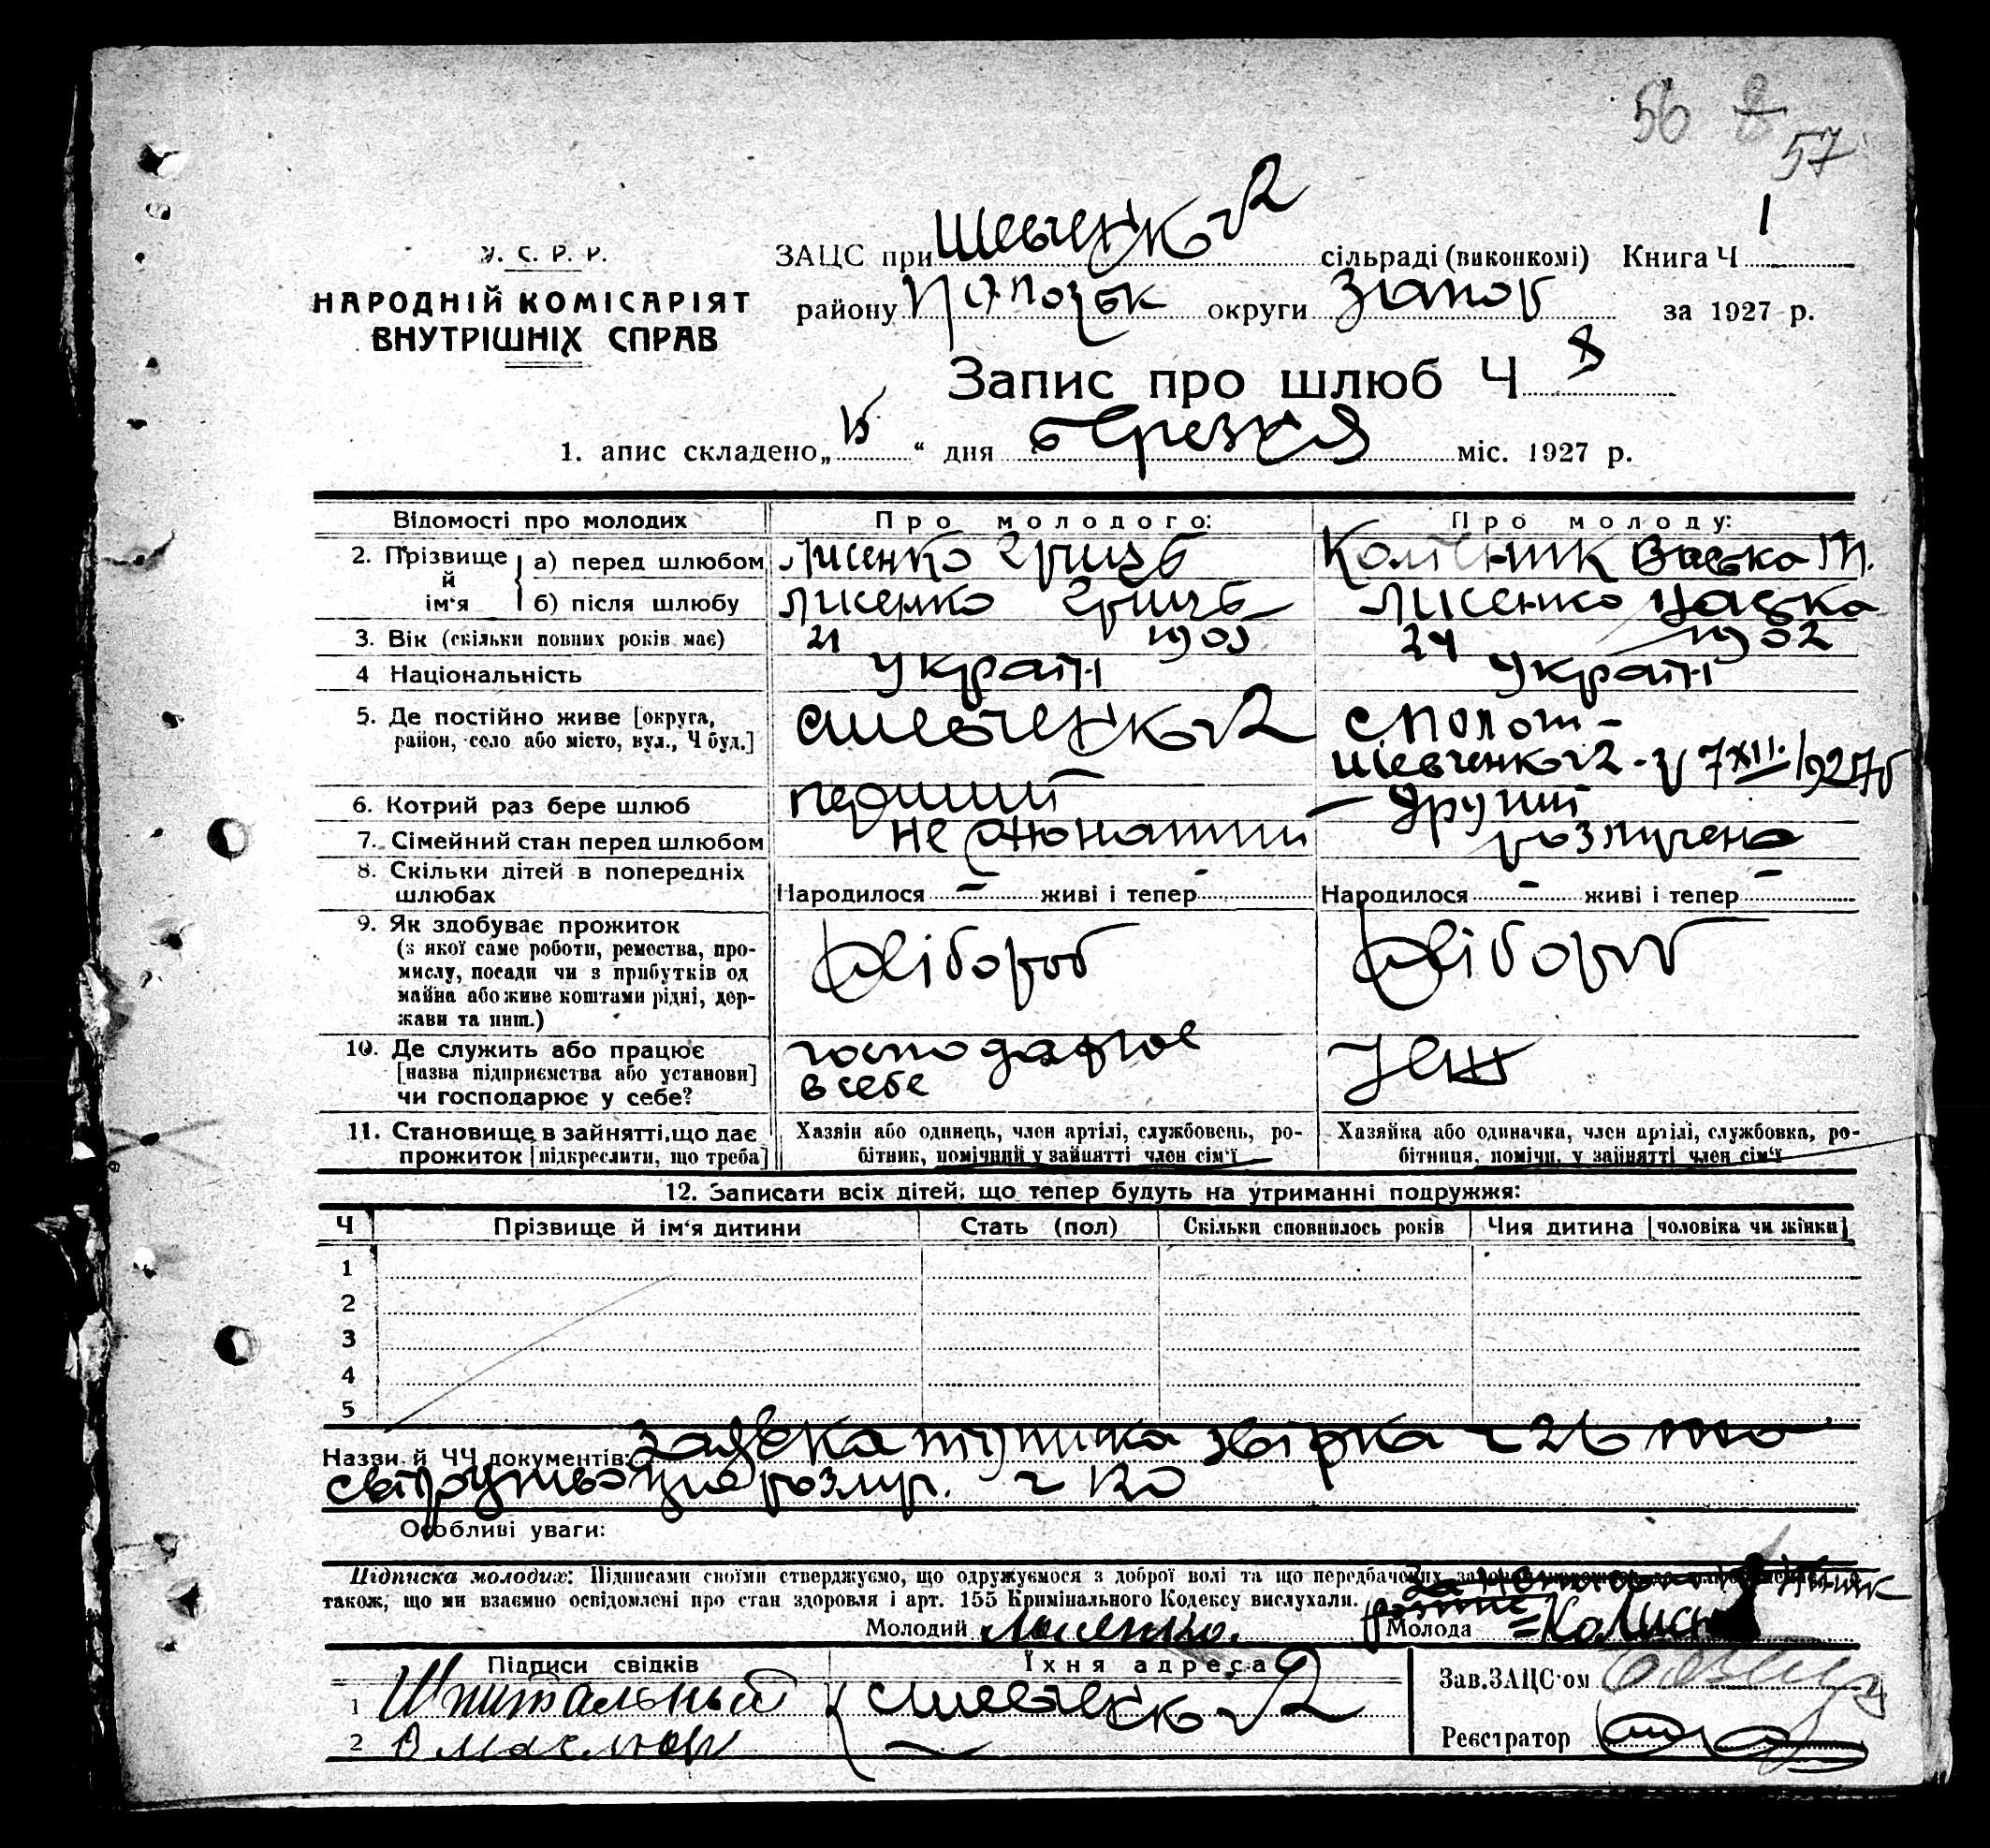 56 8
57
У. С. Р. Р.
НАРОДНІЙ КОМІСАРІЯТ
ВНУТРІШНІХ СПРАВ
ЗАЦС при Шевченків сільраді (виконкомі) Книга Ч 1
району округи Запор за 1927 р.
Запис про шлюб Ч 8
1. апис складено „15“ дня березня міс. 1927 р.
Відомості про молодих Про молодого: Про молоду:
2. Прізвище й ім‘я
а) перед шлюбом Лисенко Гриць
б) після шлюбу Лисенко Гриць Лисенко
3. Вік (скільки повних років має) 21 1905 24 1902
4 Національність Україн Україн
5. Де постійно живе [округа, район, село або місто, вул., Ч буд.] с Шевченків с Полог-
Шевченків - 7 XII. 1927 г
6. Котрий раз бере шлюб перший другий
7. Сімейний стан перед шлюбом не жонатий розлучена
8. Скільки дітей в попередніх шлюбах Народилося – живі і тепер – Народилося – живі і тепер –
9. Як здобуває прожиток
(з якої саме роботи, ремества, про-
мислу, посади чи з прибутків од
майна або живе коштами рідні, дер-
жави та инш.)
хлібороб хлібороб
10. Де служить або працює
[назва підприємства або установи]
чи господарює у себе?
господарює
в себе
11. Становище в зайнятті, що дає
прожиток [підкреслити, що треба]
Хазяїн або одинець, член артілі, службовець, ро-
бітник, помічний у зайнятті член сім‘ї
Хазяйка або одиначка, член артілі, службовка, ро-
бітниця, помічн. у зайнятті член сім‘ї
12. Записати всіх дітей, що тепер будуть на утриманні подружжя:
Ч Прізвище й ім‘я дитини Стать (пол) Скільки сповнилось років Чия дитина [чоловіка чи жінки]
1
2
3
4
5
Назви й ЧЧ документів: заявка звірка ч 26
розлуч. ч 120
Особливі уваги:
Підписка молодих: Підписами своїми стверджуємо, що одружуємося з доброї волі та що передбачених
також, що ми взаємно освідомлені про стан здоровля і арт. 155 Кримінального Кодексу вислухали.
Молодий Лисенко. Молода
Підписи свідків Їхня адреса
1 Шпитальный с Шевченків
2
Зав.ЗАЦС‘ом
Реєстратор